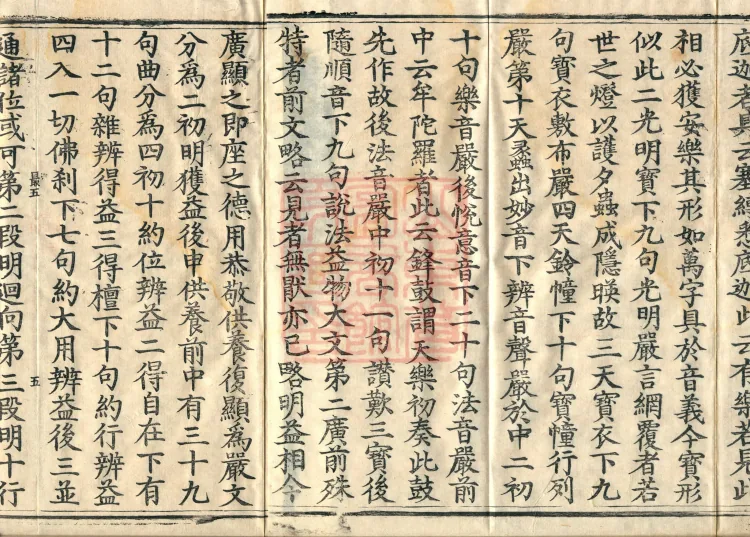 底迦者具云塞縛悉底迦此云有樂若見此
相必獲安樂其形如萬字具於音義今寶形
似此二光明寶下九句光明嚴言網覆者若
世之燈以護夕蟲成隱暎故三天寶衣下九
句寶衣敷布嚴四天鈴幢下十句寶幢行列
嚴第十天蠡出妙音下辨音聲嚴於中二初
十句樂音嚴後悅意音下二十句法音嚴前
中云牟陀羅者此云鋒鼓謂天樂初奏此鼓
先作故後法音嚴中初十一句讚歎三寶後
隨順音下九句說法益物大文第二廣前殊
特者前文略云見者無猒亦已略明益相今
廣顯之即座之德用恭敬供養復顯爲嚴文
分爲二初明獲益後申供養前中有三十九
句曲分爲四初十約位辨益二得自在下有
十二句雜辨得益三得檀下十句約行辨益
四入一切佛刹下七句約大用辨益後三並
五
通諸位或可第二段明迴向第三段明十行